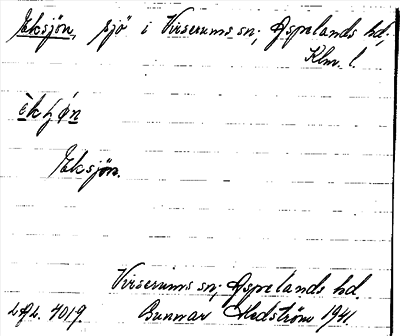 Eksjön, sjö i Virserums sn; Aspelands hd;
Klm. l.
Eksjön.
Virserums sn; Aspelands hd.
4019. Gunnar Hedström 1941